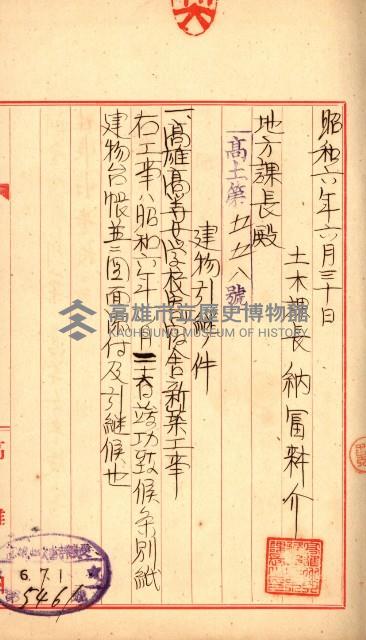 昭和六年六月三十日
土木課長 納冨耕介
地方課長殿
高土第五五八號
建物引継ノ件
一、高雄高等女学校寄宿舎新築工事
右工事ハ昭和六年 月二 日竣功致候条別紙
建物台帳並ニ図面添付及引継候也
高雄市立歷史博物館
KAOHSIUNG MUSEUM OF HISTORY
6.7.1
546
高雄